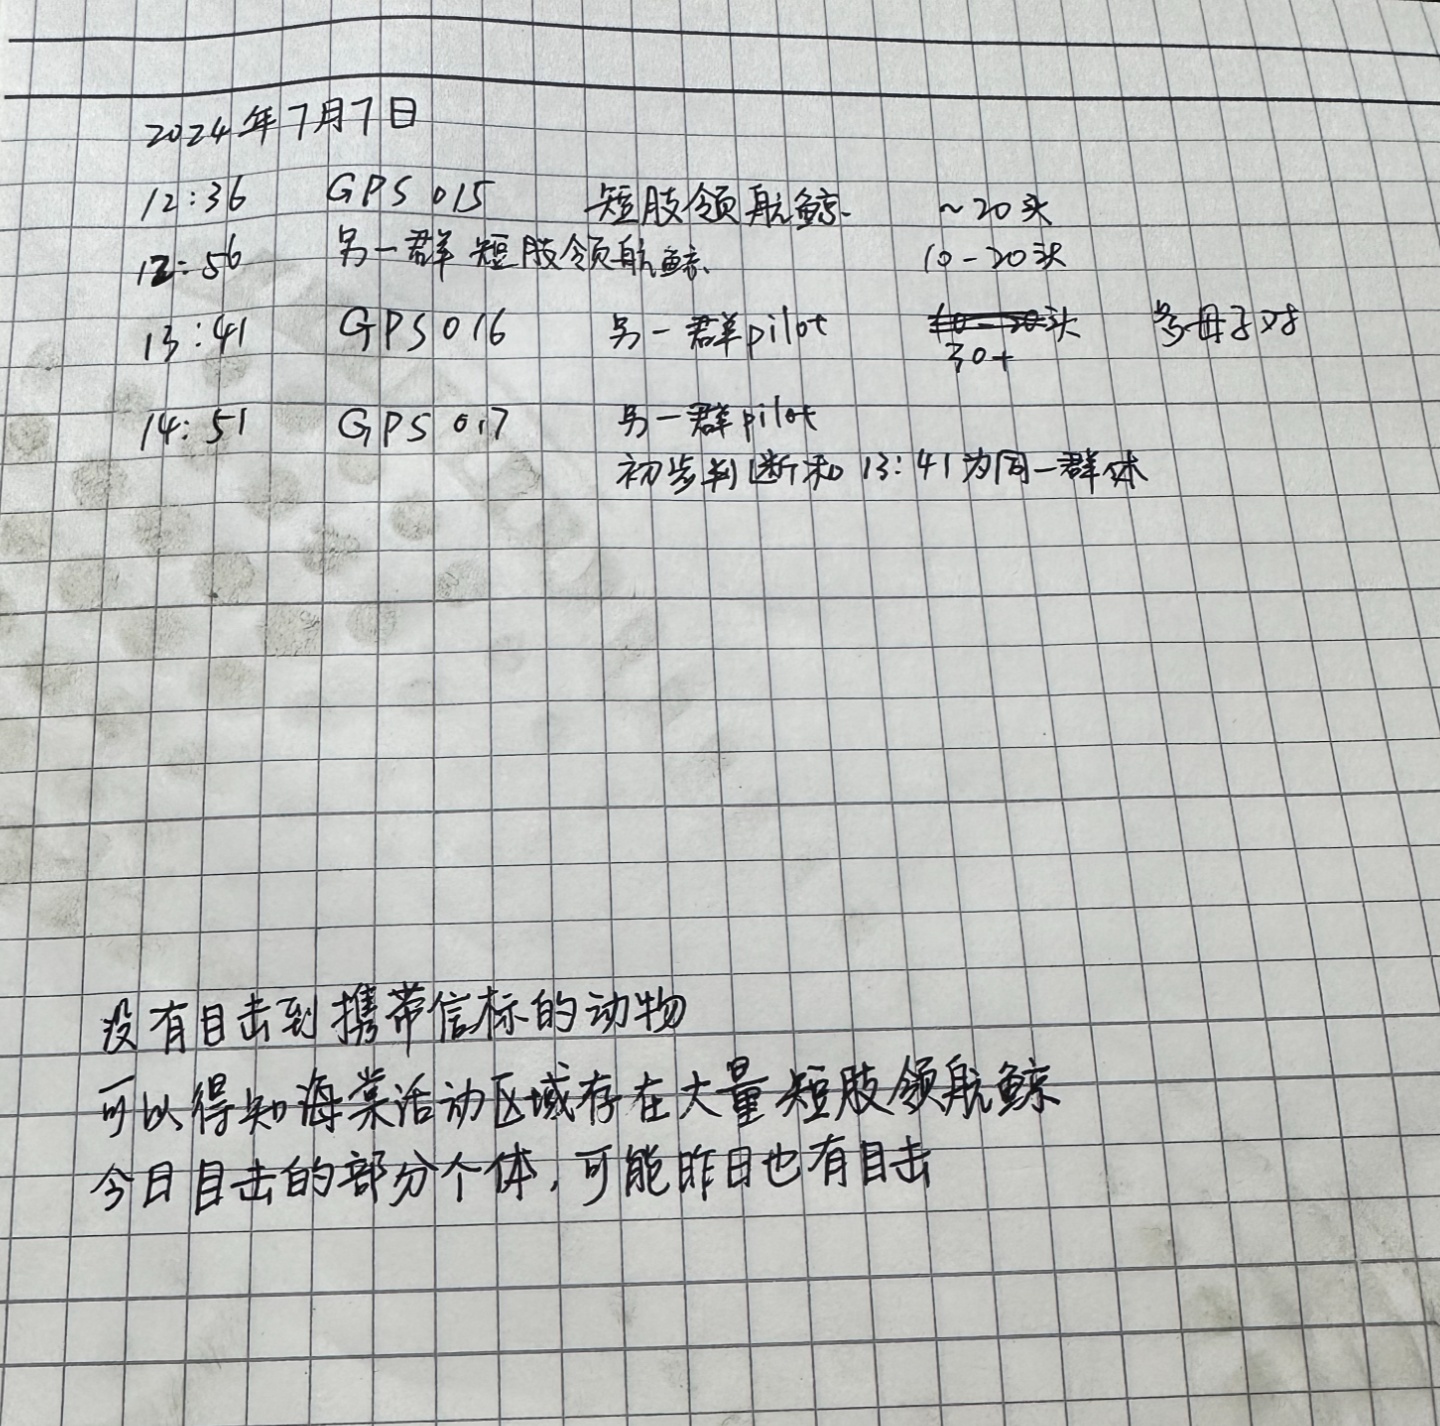 2024年7月7日
12:36 GPS 015 短肢领航鲸 ~20头
12:56 另一群短肢领航鲸 10-20头
13:41 GPS016 另一群pilot 10-20头 多母子对
30+
14:51 GPS 017 另一群pilot
初步判断和 13:41为同一群体
没有目击到携带信标的动物
可以得知海棠活动区域存在大量短肢领航鲸
今日目击的部分个体,可能昨日也有目击